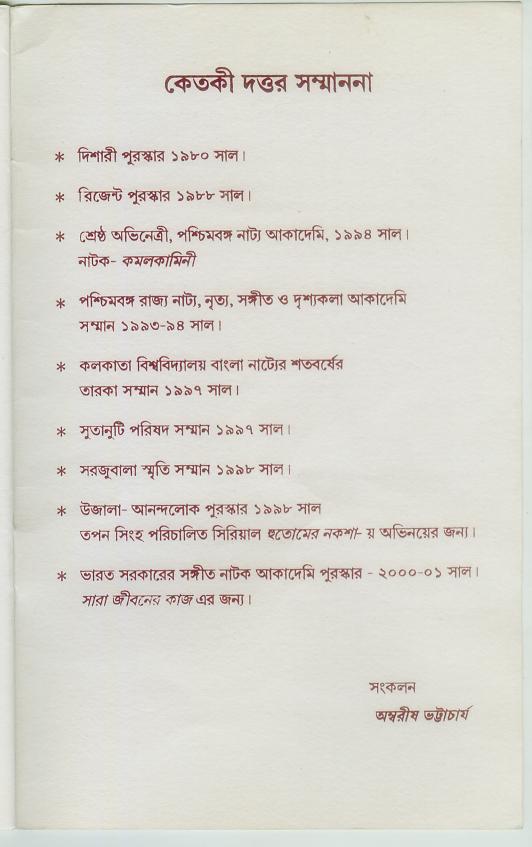 কেতকী দত্তর সম্মাননা
* দিশারী পুরস্কার ১৯৮০ সাল।
* রিজেন্ট পুরস্কার ১৯৮৮ সাল।
* শ্রেষ্ঠ অভিনেত্রী, পশ্চিমবঙ্গ নাট্য আকাদেমি, ১৯৯৪ সাল।
নাটক- কমলকামিনী
* পশ্চিমবঙ্গ রাজ্য নাট্য, নৃত্য, সঙ্গীত ও দৃশ্যকলা আকাদেমি
সম্মান ১৯৯৩-৯৪ সাল।
* কলকাতা বিশ্ববিদ্যালয় বাংলা নাট্যের শতবর্ষের
তারকা সম্মান ১৯৯৭ সাল।
* সুতানুটি পরিষদ সম্মান ১৯৯৭ সাল।
* সরজুবালা স্মৃতি সম্মান ১৯৯৮ সাল।
* উজালা- আনন্দলোক পুরস্কার ১৯৯৮ সাল
তপন সিংহ পরিচালিত সিরিয়াল হুতোমের নকশা- য় অভিনয়ের জন্য।
* ভারত সরকারের সঙ্গীত নাটক আকাদেমি পুরস্কার - ২০০০-০১ সাল।
সারা জীবনের কাজ এর জন্য।
সংকলন
অম্বরীষ ভট্টাচার্য